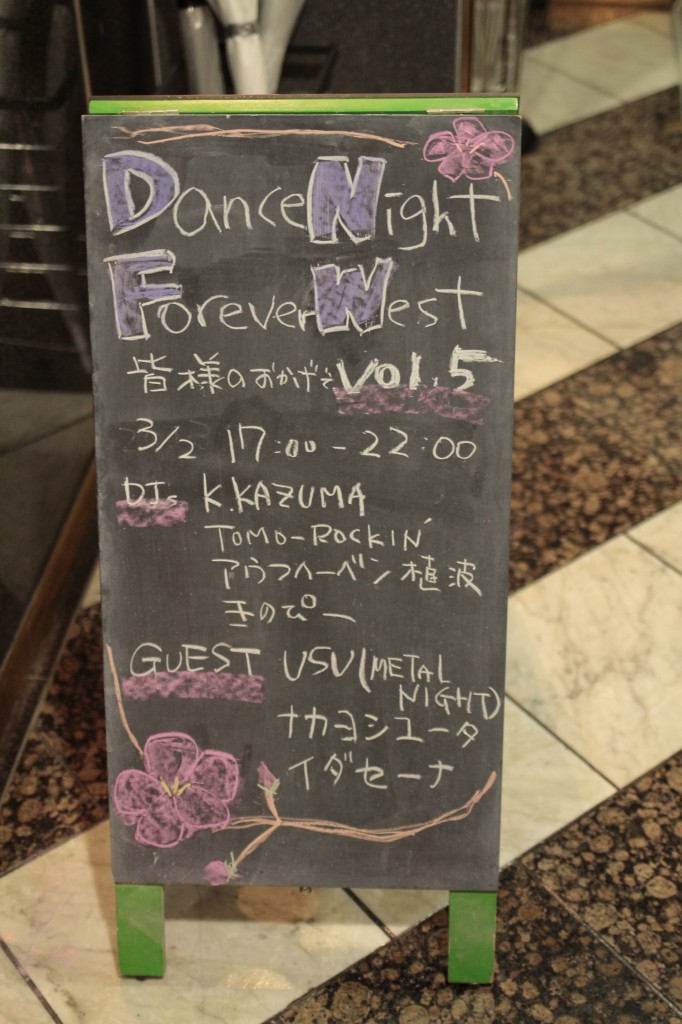 Dance Night
Forever West
皆様のおかげで Vol.5
3/2 17:00-22:00
DJs K.KAZUMA
TOMO-ROCKIN'
アウフヘーベン植波
きのぴー
GUEST USU(METAL
NIGHT)
ナカヨシユータ
イダセーナ